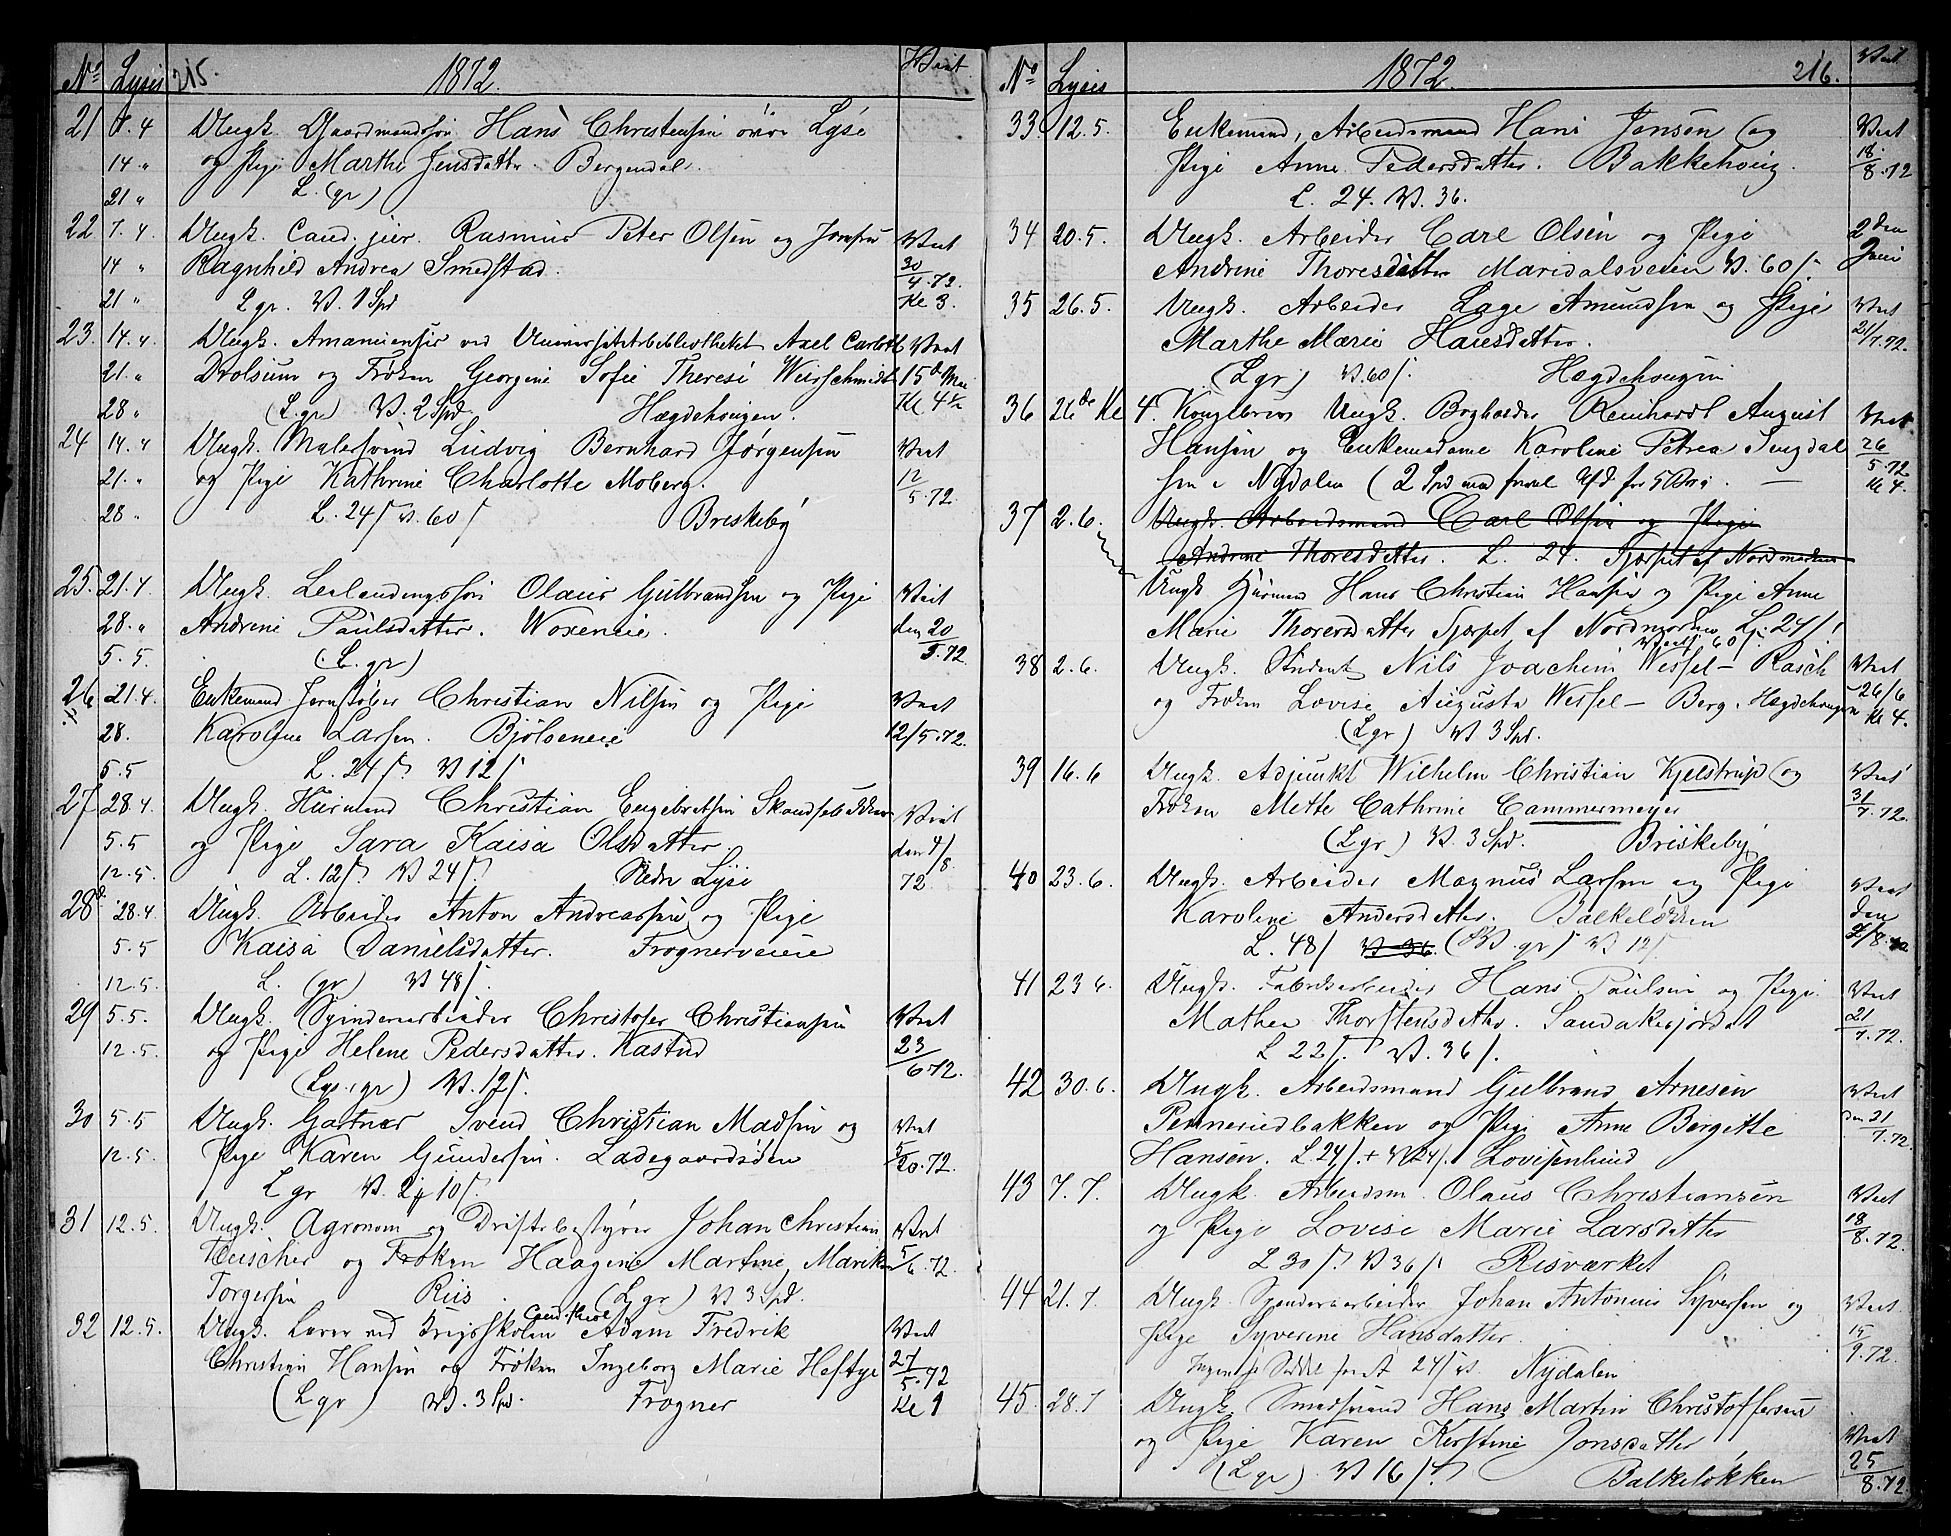 No Lysis 215. 1872. Viet
21 7.4 Ungk. Gaardmandssøn Hans Christensen øvre Lysè
14 " og Pige Marthe Jensdatter Bergendal.
21 " L. (gr)
22 7.4. Ungk. Cand. jur. Rasmus Peter Olsen og Jomfru Viet
14 " Ragnhild Andrea Smedstad. 30/4.72.
21 " L gr. V. 1 Spd Kl 3.
23. 14.4. Ungk. Amanuensis ved Universitetsbibliotheket Axel Carlott Viet
21. " Drolsum og Frøken Georgine Sofie Therese Weisschmidt 15de Mai
28 " (L. gr) V. 2 Spd. Hægdehougen. Kl 4½
24 14.4 Ungk. Malersvend Ludvig Bernhard Jørgensen Viet
21. " og Pige Kathrine Charlotte Moberg. 12/5.72.
28 " L. 24 ſ V. 60 ſ Briskeby
25. 21.4 Ungk. Leilendingssøn Olaus Gulbrandsen og Pige Viet
28. " Andrine Paulsdatter. Woxeneie. den 20/5.72
5.5. (L. gr)
26 21.4. Enkemand Jernstøber Christian Nilsen og Pige Viet
28. Karoline Larsen. Bjølseneie 12/5.72.
5.5 L. 24 ſ. V 12 ſ
27 28.4. Ungk. Husmand Christian Engebretsen Viet
5.5 og Pige Sara Kaisa Olsdatter.
12.5. L. 12 ſ. V 24 ſ. Nedre Lysè 72
28 28.4. Ungk. Arbeider Anton Andreassen og Pige
5.5 Kaisa Danielsdatter. Frognerveien
12.5. L. (gr) V 48 ſ.
29 5.5. Ungk. Spinderiarbeider Christofer Christiansen Viet
12.5. og Pige Helene Pedersdatter. Kastud 23/6.72.
(Lys. gr) V. 12 ſ.
30 5.5 Ungk. Gartner Svend Christian Madsen og Viet
12.5. Pige Karen Gundersen. Ladegaardsøen
L gr V. 10 ſ.
31 12.5. Ungk. Agronom og Driftsbestyrer Johan Christian Viet
Teischer og Frøken Haagine Martine Marike 5/6.72.
Torgersen Riis. (L gr) V 3 Spd.
32 12.5. Ungk. Lærer ved Krigsskolen Cand. theol Adam Fredrik Viet
Christian Hansen og Frøken Ingeborg Marie Heftye 27/5.72
(L gr) V. 3 Spd. Frogner Kl 1
No Lysis 1872. 216. Viet
33. 12.5. Enkemand, Arbeidsmand Hans Jensen og Viet
Pige Anne Pedersdatter. Bakkehoug. 18/8.72
L. 24. V. 36.
34 20.5. Ungk. Arbeider Carl Olsen og Pige 2den
Andrine Thoresdatter Maridalsveien V. 60 ſ. Juni
35 26.5. Ungk. Arbeider Lage Amundsen og Pige Viet
Marthe Marie Hansdatter. 21/7.72.
(L gr) V. 60 ſ. Hægdehougen
36 26de Kl 4. Kongebrev Ungk. Bogbinder Reinhardt August Viet
Hansen og Enkemadame Karoline Petrea Sengdal 26/5.72
sen i Nydalen (2 Spd Kl 4.
37 2.6. Ungk. Arbeidsmand Carl Olsen og Pige
Andrine Thoresdatter. L. 24. Tjerpet af Nordmarken
Ungk Husmand Hans Christian Hansen og Pige Anne
Marie Thorersdatter Tjerpet af Nordmarken L. 24 ſ
38 2.6. Ungk. Student Nils Joachim Wessel-Rasch Viet
og Frøken Lovise Augusta Wessel-Berg. Hægdehougen 26/6
(L gr) V 3 Spd. Kl 4.
39 16.6 Ungk. Adjunkt Wilhelm Christian Kjelstrup og Viet
Frøken Mette Cathrine Cammermeyer 31/7.72.
(L gr) V. 3 Spd. Briskeby
40 23.6. Ungk. Arbeider Magnus Larsen og Pige Viet
Karoline Andersdatter. Balkeløkken den
L. 48 ſ V 36. gr) V 12 ſ.
41 23 6. Ungk. Fabrikarbeider Hans Paulsen og Pige Viet
Mathea Thorstensdatter. Sandakerjordet 21/7.72.
L 22 ſ. V. 36 ſ.
42 30.6. Ungk. Arbeidsmand Gulbrand Arnesen Viet
Penneriedbakken og Pige Anne Bergitte den 21/7.72.
Hansen. L. 24 ſ. + V 24 ſ. Lovisenlund
43 7.7. Ungk. Arbeidsm. Olaus Christiansen Viet
og Pige Lovise Marie Larsdatter 18/8.72.
L 30 ſ. V 36 ſ. Risværket
44 21.7. Ungk. Spinderiarbeider Johan Antonius Syversen og Viet
Pige Syverine Hansdatter. 15/9.72.
24 ſ Nydalen
45. 28.7 Ungk. Smedsvend Hans Martin Christoffersen
og Pige Karen Kirstine Jonsdatter Viet
(L gr). V 16 ſ. Balkeløkken 25/8.72.